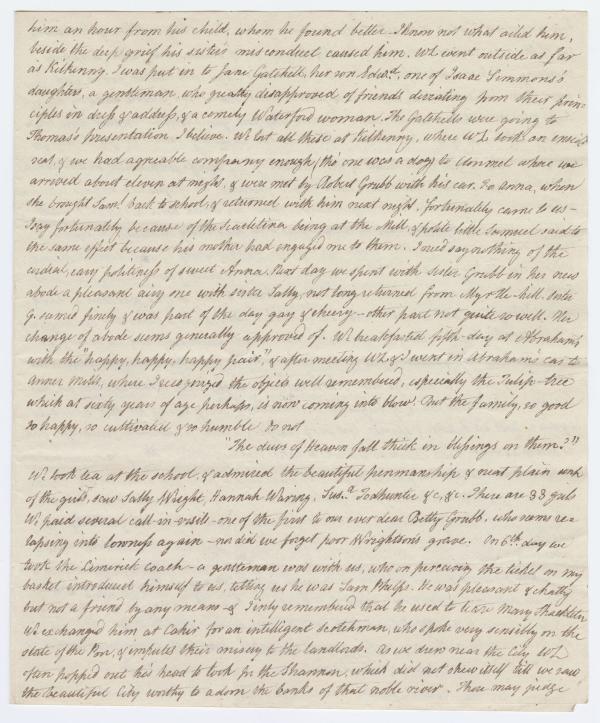 him an hour from his child, whom he found better - I know not what ailed him,
beside the deep grief his sister's misconduct caused him. WL went outside as far
as Kilkenny. I was put in to Jane Gatchell, her son Edwd, one of Isaac Simmons's
daughters, a gentleman, who greatly disapproved of friends deviating from their prin=
ciples in dress & address, & a comely Waterford woman. The Gatchells were going to
Thomas's presentation I believe. We lost all these at Kilkenny, where WL took an inside
seat, & we had agreable company enough, (tho' one was a dog) to Clonmel where we
arrived about eleven at night, & were met by Robert Grubb with his car. So Anna, when
she brought Saml. back to school, & returned with him next night. Fortunately came to us -
I say fortunately because of the Scarletina being at the Mill, & polite little Samuel said to
the same effect because his mother had engaged me to them. I need say nothing of the
cordial, easy politeness of sweet Anna. Next day we spent with sister Grubb in her new
abode a pleasant airy one with sister Sally, not long returned from Myrtle-hill. Sister
G. seemed finely & was part of the day gay & cheery - other part not quite so well. Her
change of abode seems generally approved of. We breakfasted fifth-day at Abraham's
with the "happy, happy, happy pair", & after meeting WL & I went in Abraham's car to
Anner Mills, where I recognized the objects well remembered, especially the Tulip-tree
which at sixty years of age perhaps, is now coming into blow. But the family, so good
so happy, so cultivated & so humble do not
"The dews of Heaven fall thick in blessings on them?"
We took tea at the school, & admired the beautiful penmanship & neat plain work
of the girls, saw Sally Wright, Hannah Waring, Susa. Todhunter &c, &c. There are 38 girls
We paid several call-in-visits - one of the first to our ever dear Betty Grubb, who seems re=
lapsing into lowness again - nor did we forget poor A Wrightson's grave. On 6th. day we
took the Limerick coach - a gentleman was with us, who on perceiving the ticket on my
basket introduced himself to us, telling us he was Sam Phelps. He was pleasant & chatty
but not a friend by any means - & I inly remembered that he used to teaze Mary Shackleton
We exchanged him, at Cahir for an intelligent scotchman, who spoke very sensibly on the
state of the Poor, & imputes their misery to the landlords. As we drew near the City WL
often popped out his head to look for the Shannon, which did not shew itself till we saw
the beautiful City worthy to adorn the banks of that noble river. Thou may judge